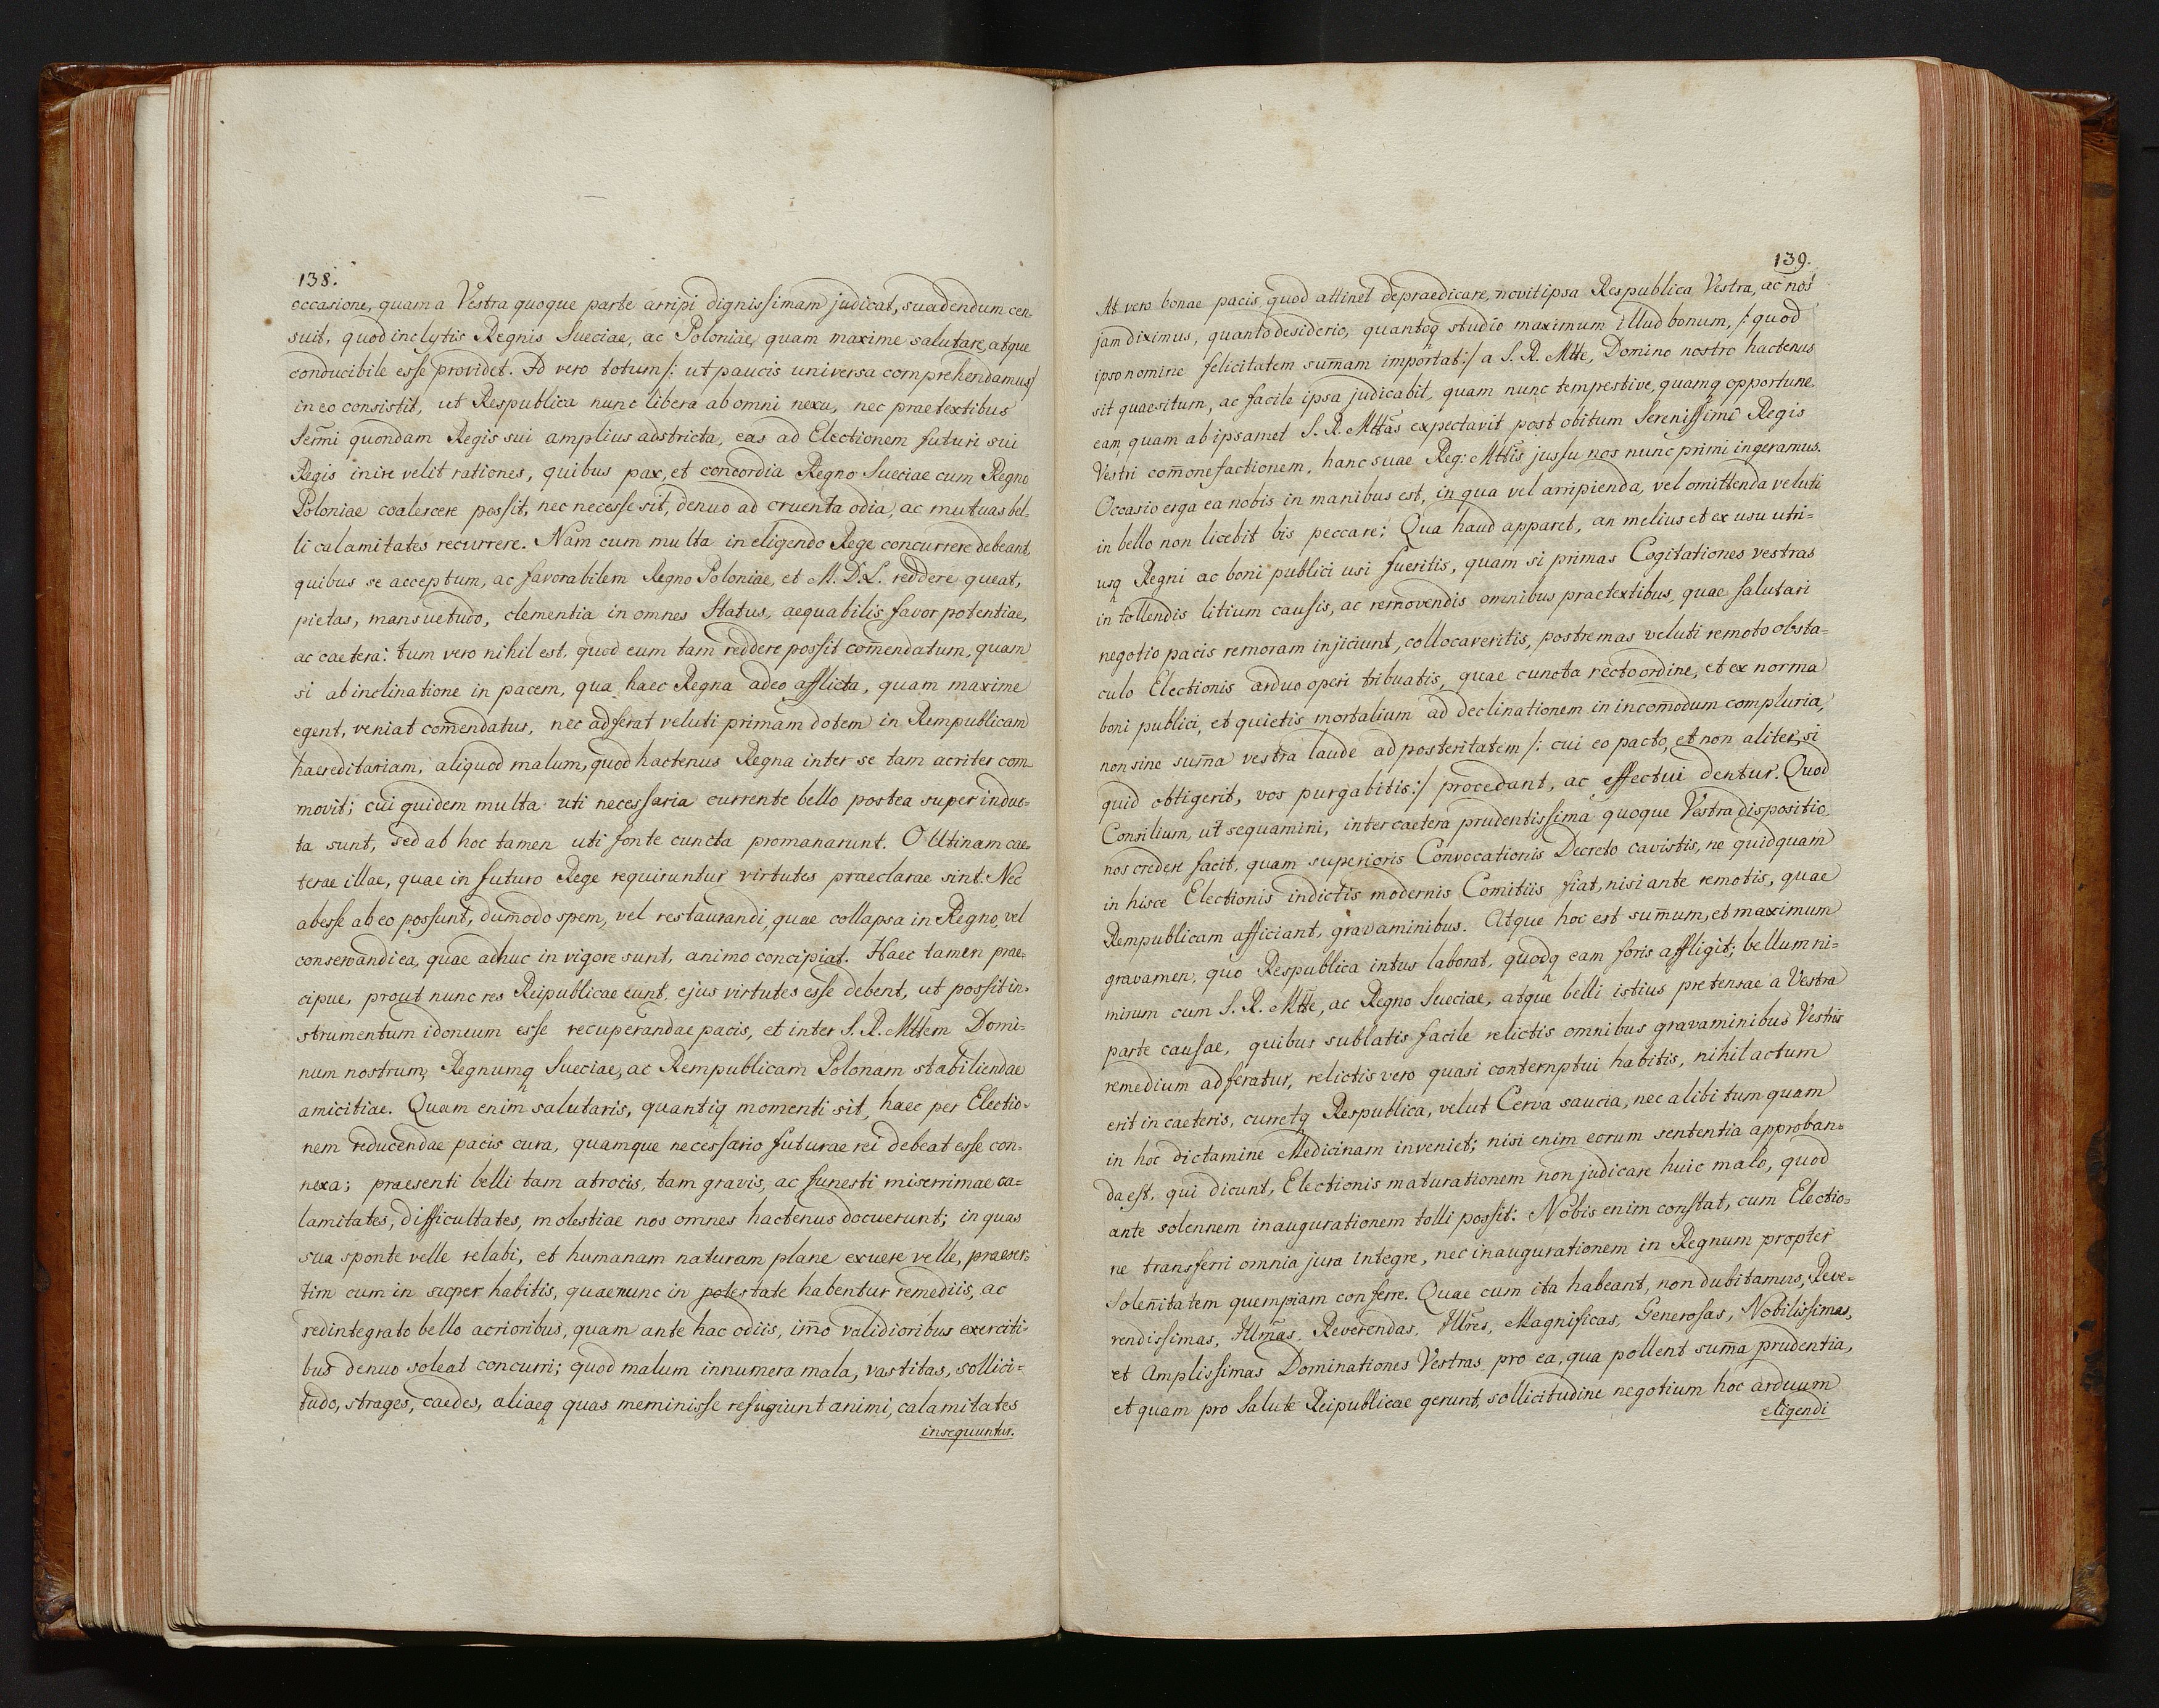 138.
occasione, quam a Vestra quoque parte arripi dignissimam judicat, suadendum cen-
suit, quod inclytis Regnis Sueciae, ac Poloniae, quam maxime salutare, atque
conducibile esse providet. Id vero totum /: ut paucis universa comprehendamus/
in eo consistit, ut Respublica nunc libera ab omni nexu, nec praetextibus
Serm̄i quondam Regis sui amplius adstricta, eas ad Electionem futuri sui
Regis inire velit rationes, quibus pax, et concordia Regno Sueciae cum Regno
Poloniae coalescere possit, nec necesse sit, denuo ad cruenta odia, ac mutuas bel-
li calamitates recurrere. Nam cum multa in eligendo Rege concurrere debeant,
quibus se acceptum, ac favorabilem Regno Poloniae, et M. D. L. reddere queat,
pietas, mansuetudo, clementia in omnes Status, aequabilis favor potentiae,
ac caetera: tum vero nihil est, quod eum tam reddere possit com̄endatum, quam
si ab inclinatione in pacem, qua haec Regna adeo afflicta, quam maxime
egent, veniat com̄endatus, nec adferat veluti primam dotem in Rempublicam
haereditariam, aliquod malum, quod hactenus Regna inter se tam acriter com-
movit; cui quidem multa uti necessaria currente bello postea super induc-
ta sunt, sed ab hoc tamen uti fonte cuncta promanarunt. O Utinam cae-
terae illae, quae in futuro Rege requiruntur virtutes praeclarae sint. Nec
abesse ab eo possunt, dum̄odo spem, vel restaurandi, quae collapsa in Regno, vel
conservandi ea, quae adhuc in vigore sunt, animo concipiat. Haec tamen prae-
cipue, prout nunc res Reipublicae eunt, ejus virtutes esse debent, ut possit in-
strumentum idoneum esse recuperandae pacis, et inter S. R. Mttem Domi-
num nostrum, Regnumq Sueciae, ac Rempublicam Polonam stabiliendae
amicitiae. Quam enim salutaris, quantiq momenti sit, haec per Electio-
nem reducendae pacis cura, quamque necessario futurae rei debeat esse con-
nexa; praesenti belli tam atrocis, tam gravis, ac funesti miserrimae ca-
lamitates, difficultates, molestiae nos omnes hactenus docuerunt; in quas
sua sponte velle relabi, et humanam naturam plane exuere velle, praeser-
tim cum in super habitis, quae nunc in potestate habentur remediis, ac
redintegrato bello acrioribus, quam ante hac odiis, im̄o validioribus exerciti-
bus denuo soleat concurri; quod malum innumera mala, vastitas, sollici-
tudo, strages, caedes, aliaeq quas meminisse refugiunt animi, calamitates
insequuntur.
139.
At vero bonae pacis quod attinet depraedicare, novit ipsa Respublica Vestra, ac nos
jam diximus, quanto desiderio, quantoq studio maximum illud bonum, /: quod
ipso nomine felicitatem sum̄am importat :/ a S. R. Mtte, Domino nostro hactenus
sit quaesitum, ac facile ipsa judicabit, quam nunc tempestive, quamq opportune
eam, quam ab ipsamet S. R. Mttas expectavit post obitum Serenissimi Regis
Vestri com̄onefactionem, hanc suae Reg: Mttis jussu nos nunc primi ingeramus.
Occasio erga ea nobis in manibus est, in qua vel arripienda, vel omittenda veluti
in bello non licebit bis peccare; Qua haud apparet, an melius et ex usu utri-
usq Regni ac boni publici usi fueritis, quam si primas Cogitationes vestras
in tollendis litium causis, ac removendis omnibus praetextibus, quae salutari
negotio pacis remoram injiciunt, collocaveritis, postremas veluti remoto obsta-
culo Electionis arduo operi tribuatis, quae cuncta recto ordine, et ex norma
boni publici, et quietis mortalium ad declinationem in incom̄odum compluria,
non sine sum̄a vestra laude ad posteritatem /: cui eo pacto, et non aliter, si
quid obtigerit, vos purgabitis :/ procedant, ac effectui dentur. Quod
Consilium, ut sequamini, inter caetera prudentissima quoque Vestra dispositio
nos credere facit, quam superioris Convocationis Decreto cavistis, ne quidquam
in hisce Electionis indictis modernis Comitiis fiat, nisi ante remotis, quae
Rempublicam afficiant, gravaminibus. Atque hoc est sum̄um, et maximum
gravamen, quo Respublica intus laborat, quodq eam foris affligit; bellum ni-
mirum cum S. R. Mtte, ac Regno Sueciae, atque belli istius pretensae a Vestra
parte causae, quibus sublatis facile relictis omnibus gravaminibus Vestris
remedium adferatur, relictis vero quasi contemptui habitis, nihil actum
erit in caeteris, curretq Respublica, velut Cerva saucia, nec alibi tum quam
in hoc dictamine Medicinam inveniet; nisi enim eorum sententia approban-
da est, qui dicunt, Electionis maturationem non judicare huic malo, quod
ante solennem inaugurationem tolli possit. Nobis enim constat, cum Electio-
ne transferri omnia jura integre, nec inaugurationem in Regnum propter
Solen̄itatem quempiam conferre. Quae cum ita habeant, non dubitamus, Reve-
rendissimas, Illmas, Reverendas, Illres, Magnificas, Generosas, Nobilissimas,
et Amplissimas Dominationes Vestras pro ea, qua pollent sum̄a prudentia,
et quam pro Salute Reipublicae gerunt, sollicitudine negotium hoc arduum
eligendi